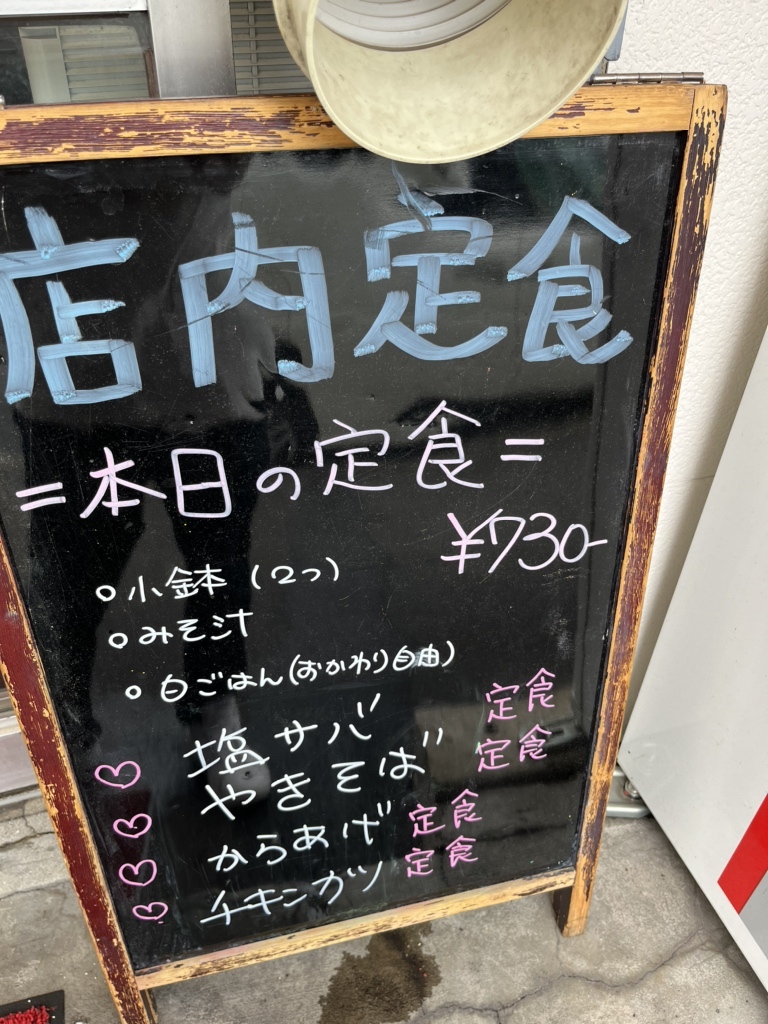 店内定食
=本日の定食=
¥730-
○小鉢(2つ)
○みそ汁
○白ごはん(おかわり自由)
♡塩サバ定食
♡やきそば定食
♡からあげ定食
♡チキンカツ定食